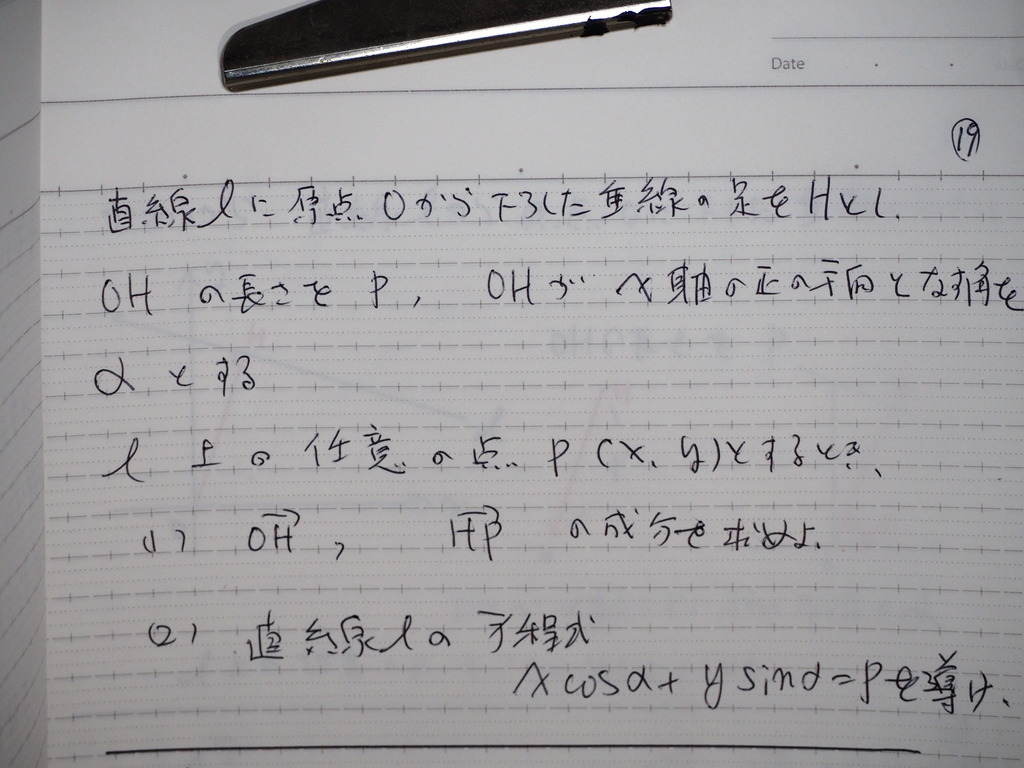 Date
⑲
直線lに原点Oから下ろした垂線の足をHとし.
OHの長さをp, OHがx軸の正の方向となす角を
αとする
l上の任意の点P(x, y)とするとき、
(1) OH, HPの成分を求めよ.
(2) 直線lの方程式
x cosα + y sinα = pを導け.